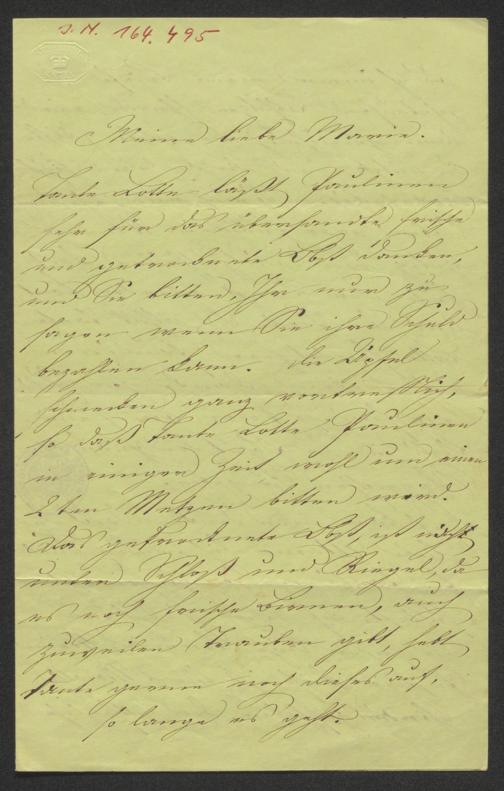 J.N. 164.495
Meine liebe Marie.
Tante Lotte läßt Paulinen
sehr für das übersandte frische
und getrocknete Obst danken,
und Sie bitten, Ihr nur zu
sagen wenn Sie ihre Schuld
bezahlen kann. Die Äpfel
schmecken ganz vortrefflich,
so daß Tante Lotte Paulinen
in einiger Zeit wohl um einen
2ten Metzen bitten wird.
Das getrocknete Obst, ist
unter Schloß und Riegel, da
es noch frische Birnen, auch
zuweilen Trauben gibt, hebt
Tante gerne noch dieses auf,
so lange es geht.